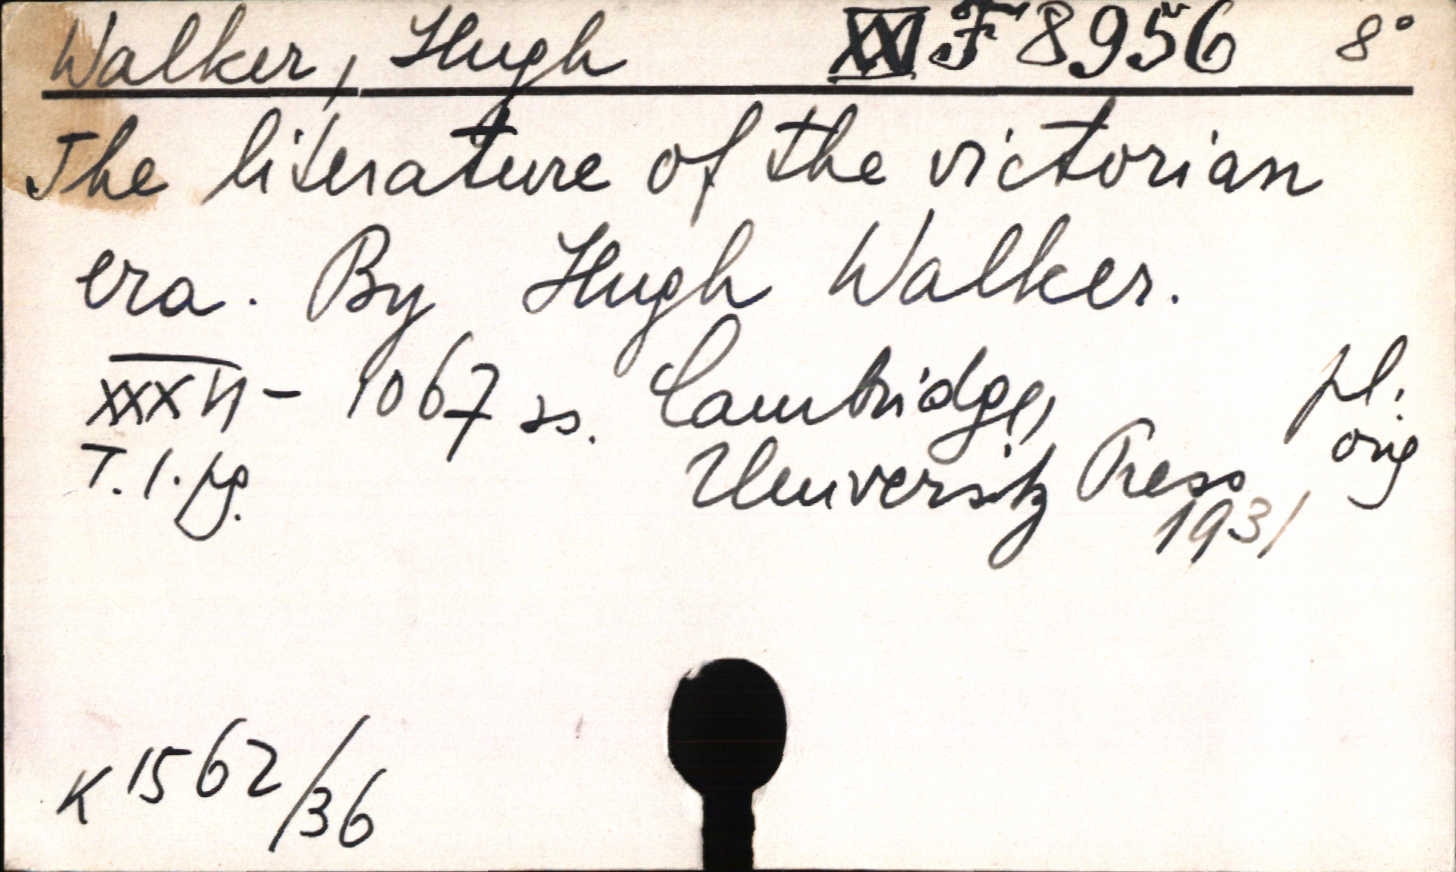 Walker, Hugh XXI F 8956 8°
The literature of the victorian
era. By Hugh Walker.
1067 ss. Cambridge, pl.
T. 1. pg. University Press orig
1931
K 1562/36